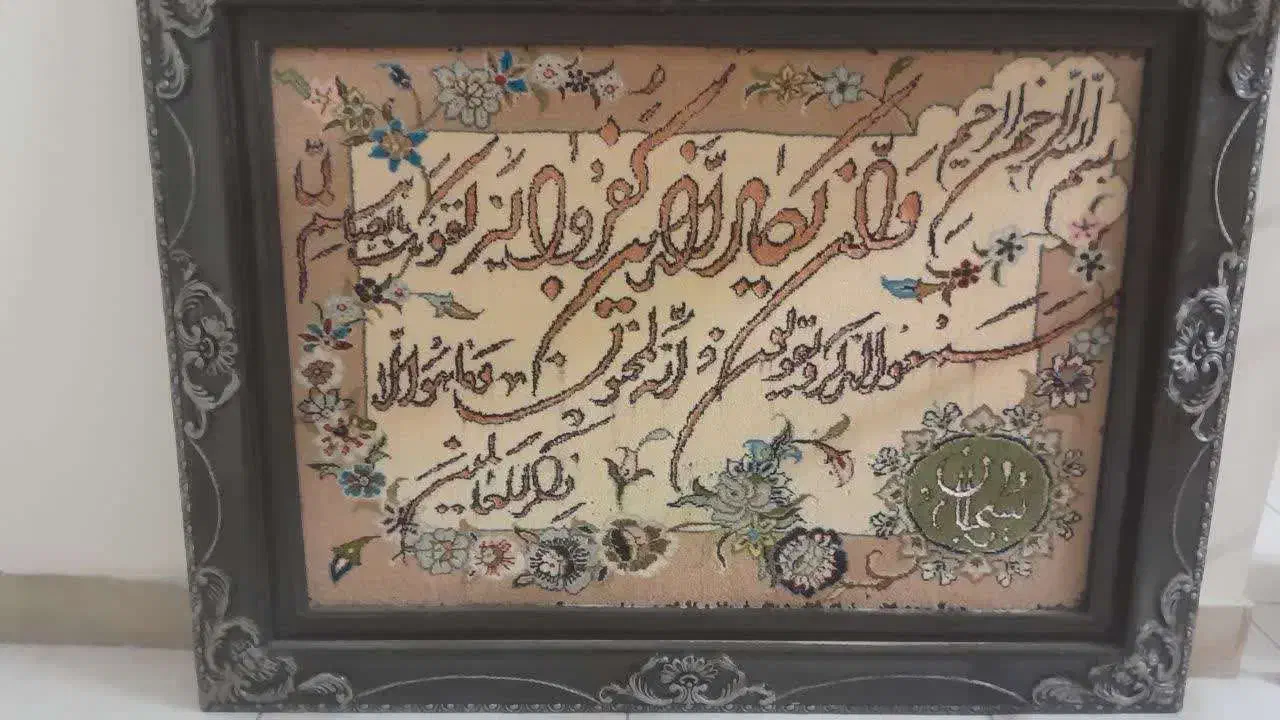 بسم الله الرحمن الرحيم
وَان يكاد الَّذين كفروا ليزلقونك بابصارهم لمّا
سمعوا الذكر ويقولون انّه لمجنون وما هو الّا
ذكر للعالمين